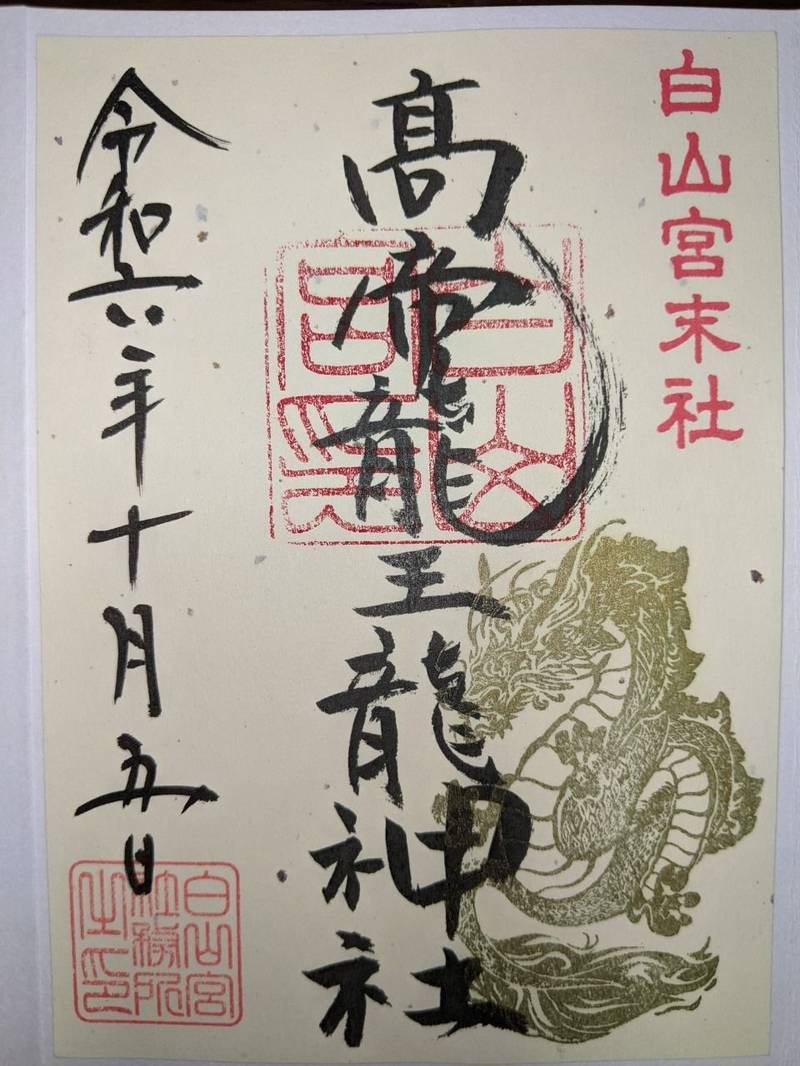 白山宮末社
髙帝龍王龍神社
令和六年十月五日
白山宮印
白山宮
社務所
之印